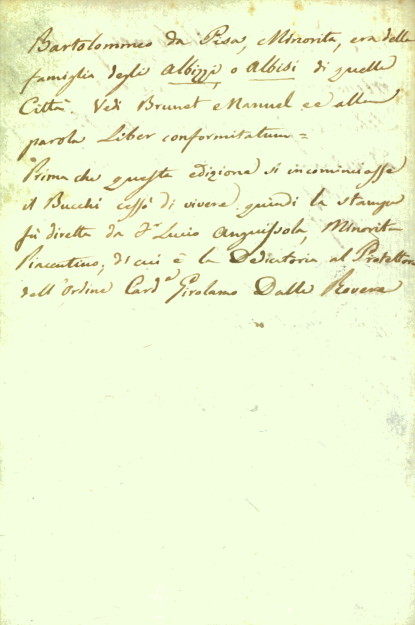 Bartolommeo da Pisa, Minorita, era della
famiglia degli Albizzi, o Albisi di quella
Città. Vedi Brunet e Manuel ec alla
parola Liber conformitatum =
Prima che questa edizione si incominciasse
il Bucchi cessò di vivere quindi la stampa
fù diretta da Fr Lucio Anguissola, Minorita
Piacentino, di cui è la Dedicatoria al Protettore
dell'Ordine Card.e Girolamo Dalla Rovere